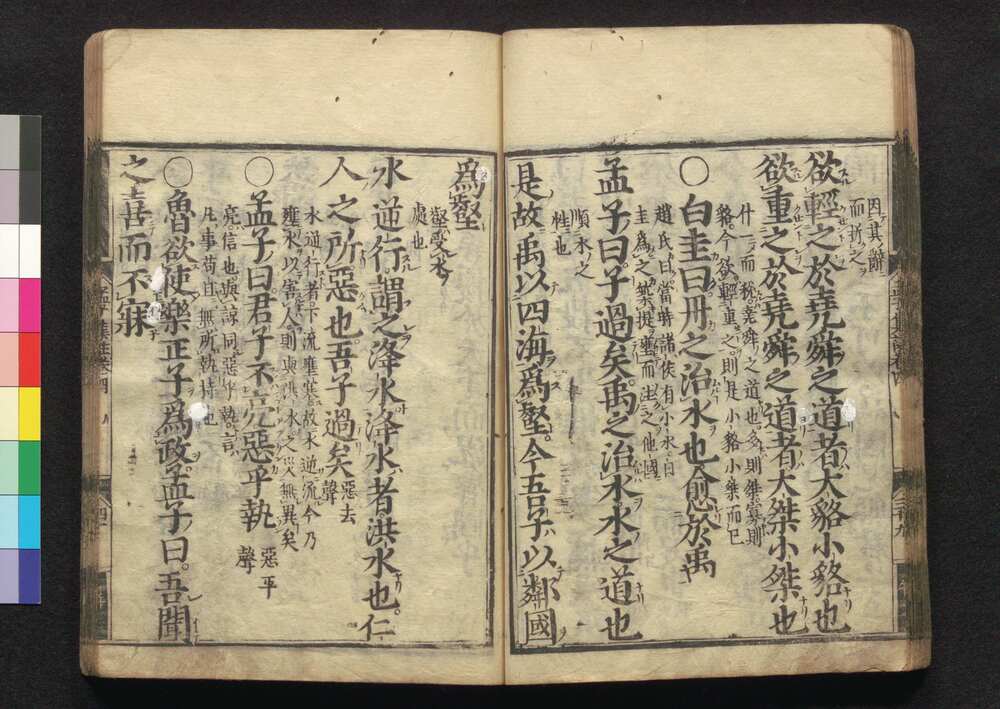 因其辭
而折之
欲輕之於堯舜之道者大貉小貉也
欲重之於堯舜之道者大桀小桀也
什一而稅堯舜之道也多則桀寡則
貉今欲輕重之則是小貉小桀而已
○白圭曰丹之治水也愈於禹
趙氏曰當時諸侯有小水白
圭爲之築堤壅而注之他國
孟子曰子過矣禹之治水水之道也
順水之
性也
是故禹以四海爲壑今吾子以鄰國
爲壑
壑受水
處也
水逆行謂之洚水洚水者洪水也仁
人之所惡也吾子過矣
惡去
聲
水逆行者下流壅塞故水逆流今乃
壅水以害人則與洪水之災無異矣
○孟子曰君子不亮惡乎執
惡平
聲
亮信也與諒同惡乎執言
凡事苟且無所執持也
○魯欲使樂正子爲政孟子曰吾聞
之喜而不寐